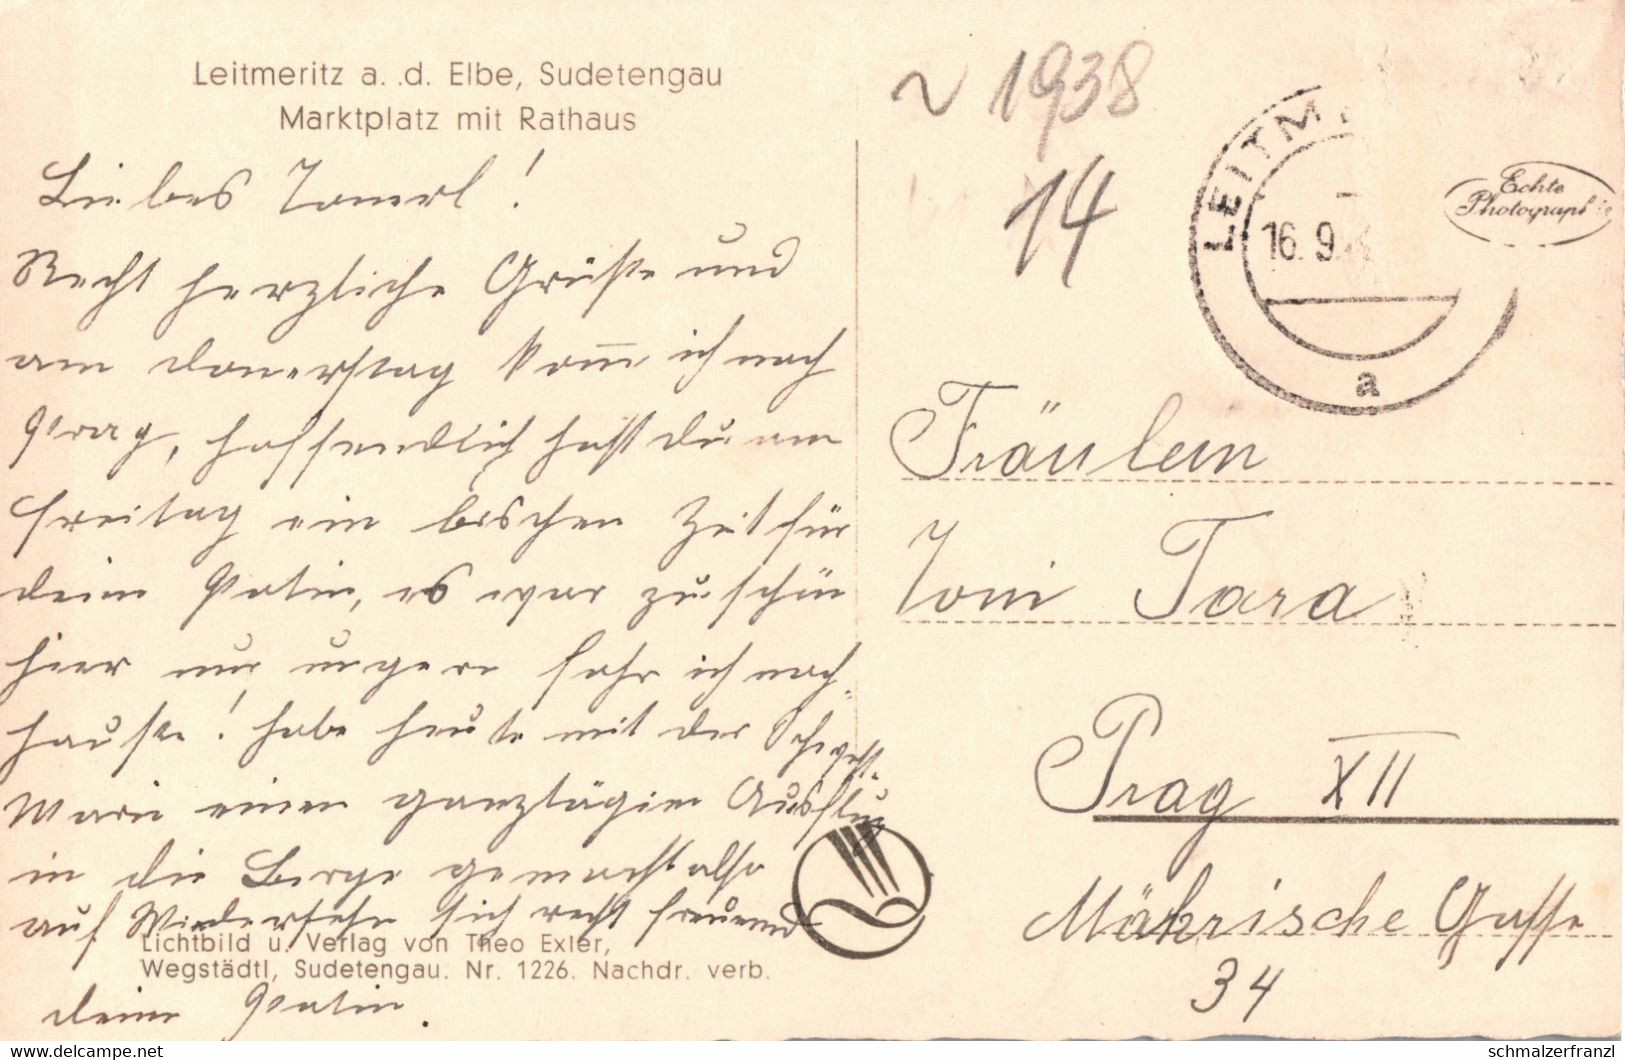 Leitmeritz a. d. Elbe, Sudetengau
Marktplatz mit Rathaus
Liebes Tonerl!
Recht herzliche Grüße und
am Donerstag komm ich nach
Prag, hoffendlich hast du am
Freitag ein bischen Zeit für
deine Patin, es war zu schön
hier nur ungern fahr ich nach
hause! habe heute mit der Schwest.
Marie einen ganztägien Ausflug
in die Berge gemacht also
auf Wiedersehn sich recht freuend
Lichtbild u. Verlag von Theo Exler,
Wegstädtl, Sudetengau. Nr. 1226. Nachdr. verb.
deine Patin.
~ 1938
14
LEITM
16. 9.
a
Echte
Photographie
Fräulein
Toni Tara
Prag XII
Mährische Gasse
34
© www.delcampe.net
schmalzerfranzl